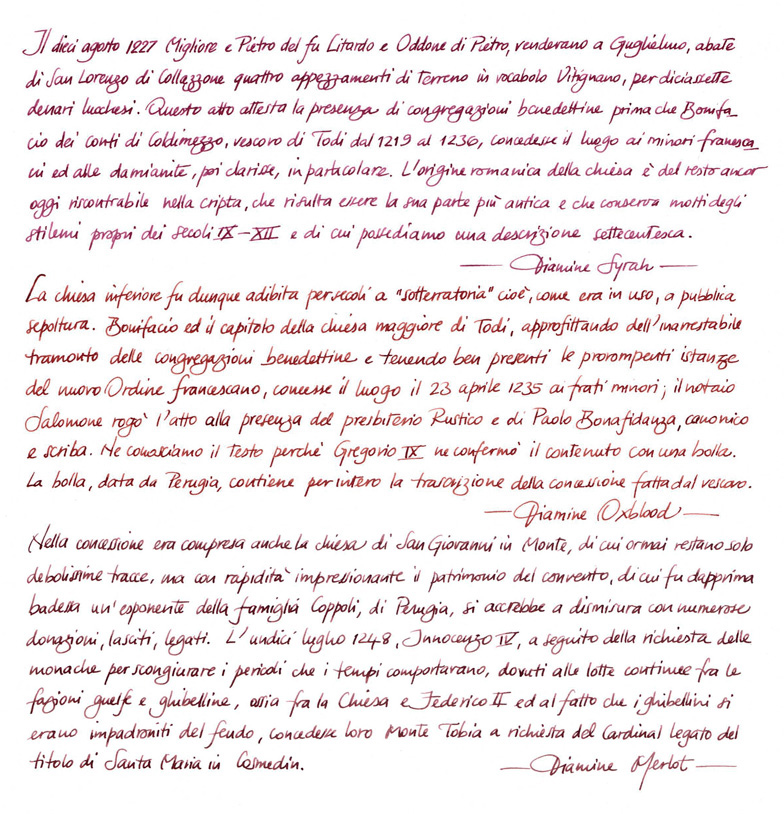 Il dieci agosto 1227 Migliore e Pietro del fu Litardo e Oddone di Pietro, venderano a Guglielmo, abate
di San Lorenzo di Collazzone quattro appezzamenti di terreno in vocabolo Vitignano, per diciassette
denari lucchesi. Questo atto attesta la presenza di congregazioni benedettine prima che Bonifa
cio dei conti di Coldimezzo, vescovo di Todi dal 1219 al 1236, concedesse il luogo ai minori francesca
ni ed alle damianite, poi clarisse, in particolare. L'origine romanica della chiesa è del resto ancor
oggi riscontrabile nella cripta, che risulta essere la sua parte più antica e che conserva molti degli
stilemi propri dei secoli IX-XII e di cui possediamo una descrizione settecentesca.
— Diamine Syrah —
La chiesa inferiore fu dunque adibita per secoli a "sotterratoria" cioè, come era in uso, a pubblica
sepoltura. Bonifacio ed il capitolo della chiesa maggiore di Todi, approfittando dell'inarrestabile
tramonto delle congregazioni benedettine e tenendo ben presenti le prorompenti istanze
del nuovo Ordine francescano, concesse il luogo il 23 aprile 1235 ai frati minori; il notaio
Salomone rogò l'atto alla presenza del presbiterio Rustico e di Paolo Bonafidanza, canonico
e scriba. Ne conosciamo il testo perché Gregorio IX ne confermò il contenuto con una bolla.
La bolla, data da Perugia, contiene per intero la trascrizione della concessione fatta dal vescovo.
— Diamine Oxblood —
Nella concessione era compresa anche la chiesa di San Giovanni in Monte, di cui ormai restano solo
debolissime tracce, ma con rapidità impressionante il patrimonio del convento, di cui fu dapprima
badessa un'esponente della famiglia Coppoli, di Perugia, si accrebbe a dismisura con numerose
donazioni, lasciti, legati. L'undici luglio 1248, Innocenzo IV, a seguito della richiesta delle
monache per scongiurare i pericoli che i tempi comportavano, dovuti alle lotte continue fra le
fazioni guelfe e ghibelline, ossia fra la Chiesa e Federico II ed al fatto che i ghibellini si
erano impadroniti del feudo, concedesse loro Monte Tobia a richiesta del Cardinal legato del
titolo di Santa Maria in Cosmedin.
— Diamine Merlot —